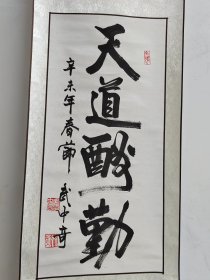 天道酬勤
辛未年春節 武中奇